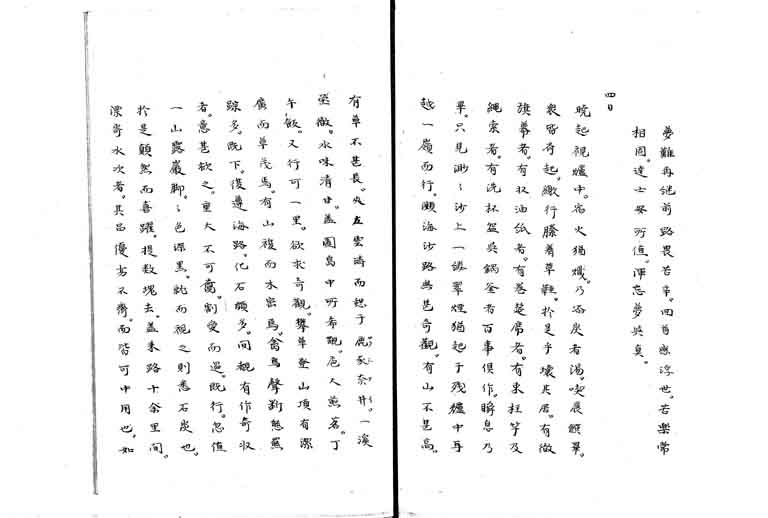 夢難再継前路畏苦辛。回首感浮世。苦樂常
相因。達士安所值。渾忘夢與真。
四日
晩起視爐中。宿火猶熾。乃添炭煮湯。喫晨饌畢。
衆皆奇起。繳行縢着草鞋。於是乎壞其居。有徹
旗幕者。有收油紙者。有巻莚席者。有束柱竿及
繩索者。有洗杯盆與鍋釜者百事倶作。瞬息乃
畢。只見渺々沙上一縷翠煙猶起于残爐中耳
越一嶺而行。瀕海沙路無甚奇觀。有山不甚高。
有草不甚長。央左雲涛而
一溪
瑩徹。水味清甘。蓋國島中所希觀。卮人煎茗。丁
午飯。又行可一里。欲求奇觀。攀草登山頂有深
廣而草茂焉。有山複而水密焉。禽鳥聲断熊羆
踪多。既下。復遵海路。化石頗多。間観有作奇状
者。意甚欲之。重大不可齎。割愛而過。既行。忽値
一山露巌脚。々色深黒。就而視之則悉石炭也。
於是顛然而喜躍。提数塊去。蓋来路十余里間。
漂寄水次者。其品優劣不齊。而皆可中用也。如